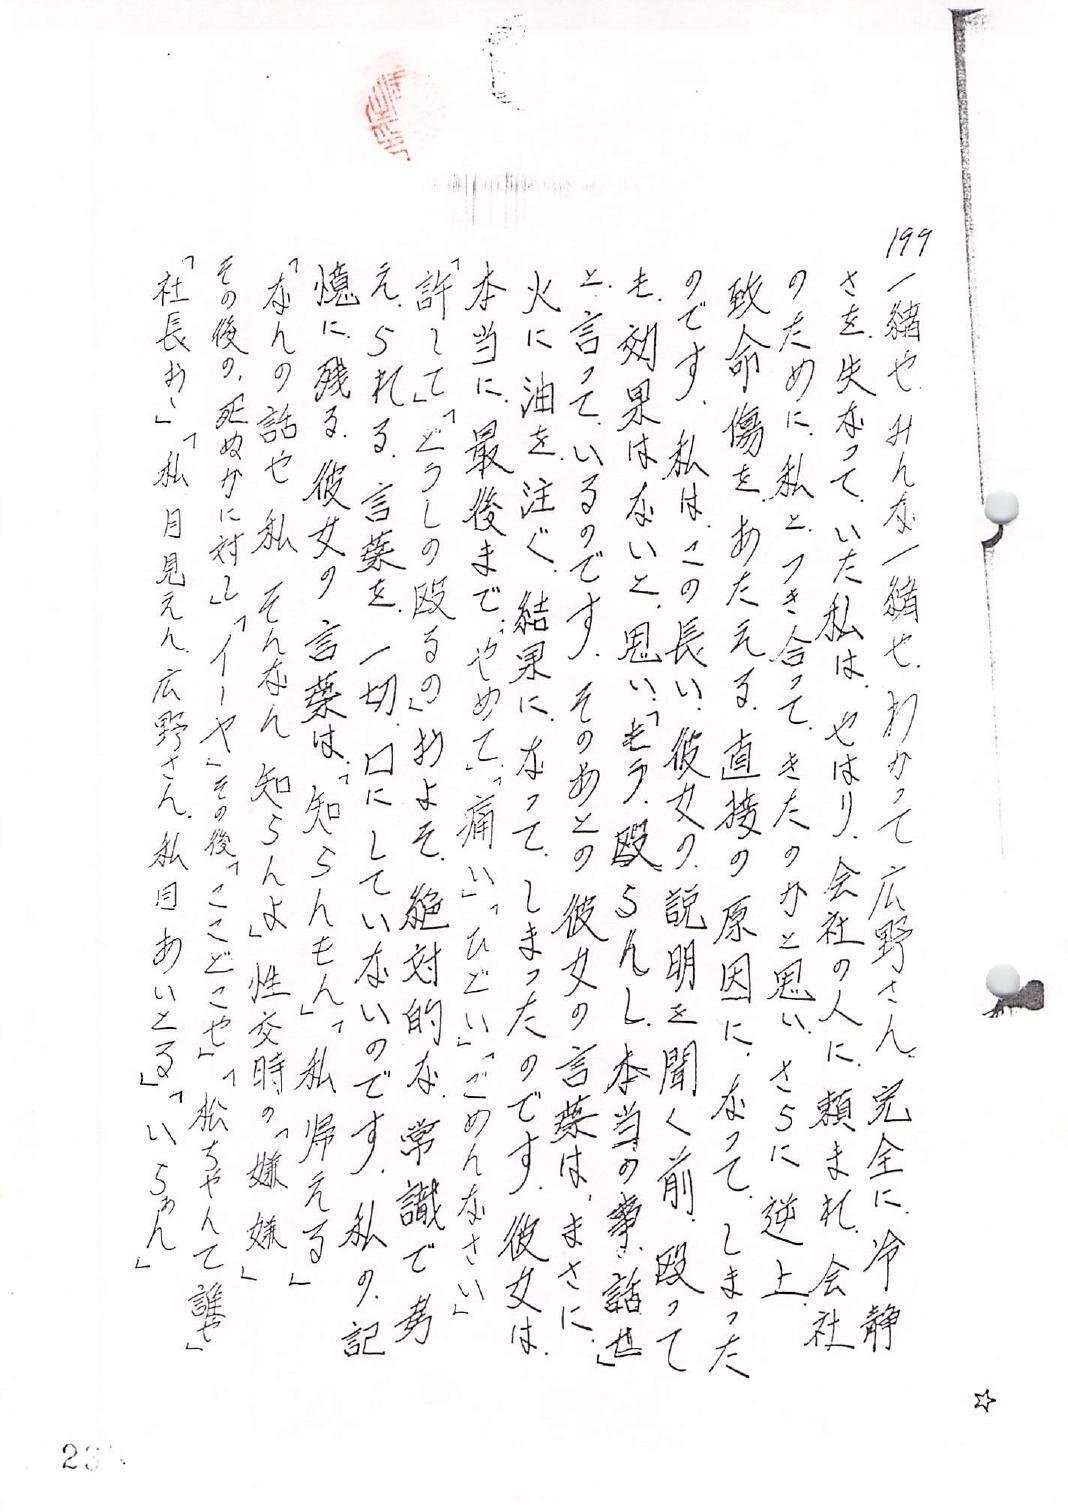 199
一緒や、みんな一緒や、わかって広野さん、完全に、冷静
さを、失なって、いた私は、やはり、会社の人に、頼まれ、会社
のために、私と、つき合って、きたのかと思い、さらに逆上、
致命傷を、あたえる、直接の原因に、なって、しまった
のです、私は、この長い、彼女の、説明を聞く前、殴って
も、効果はないと、思い、「もう、殴らんし、本当の事、話せ」
と、言って、いるのです、そのあとの彼女の言葉は、まさに、
火に油を、注ぐ、結果に、なって、しまったのです、彼女は、
本当に、最後まで、「やめて」「痛い」「ひどい」「ごめんなさい」
「許して」「どうしの殴るの」およそ、絶対的な、常識で考
え、られる、言葉を、一切、口にしていないのです、私の、記
憶に、残る、彼女の、言葉は、「知らんもん」「私帰える」
「なんの話や私、そんなん知らんよ」性交時の「嫌嫌」
その後の、死ぬかに対し「イーヤ」その後「ここどこや」「松ちゃんて誰や」
「社長お」「私、目見えん、広野さん、私目あいとる」「いらぁん」
☆
23